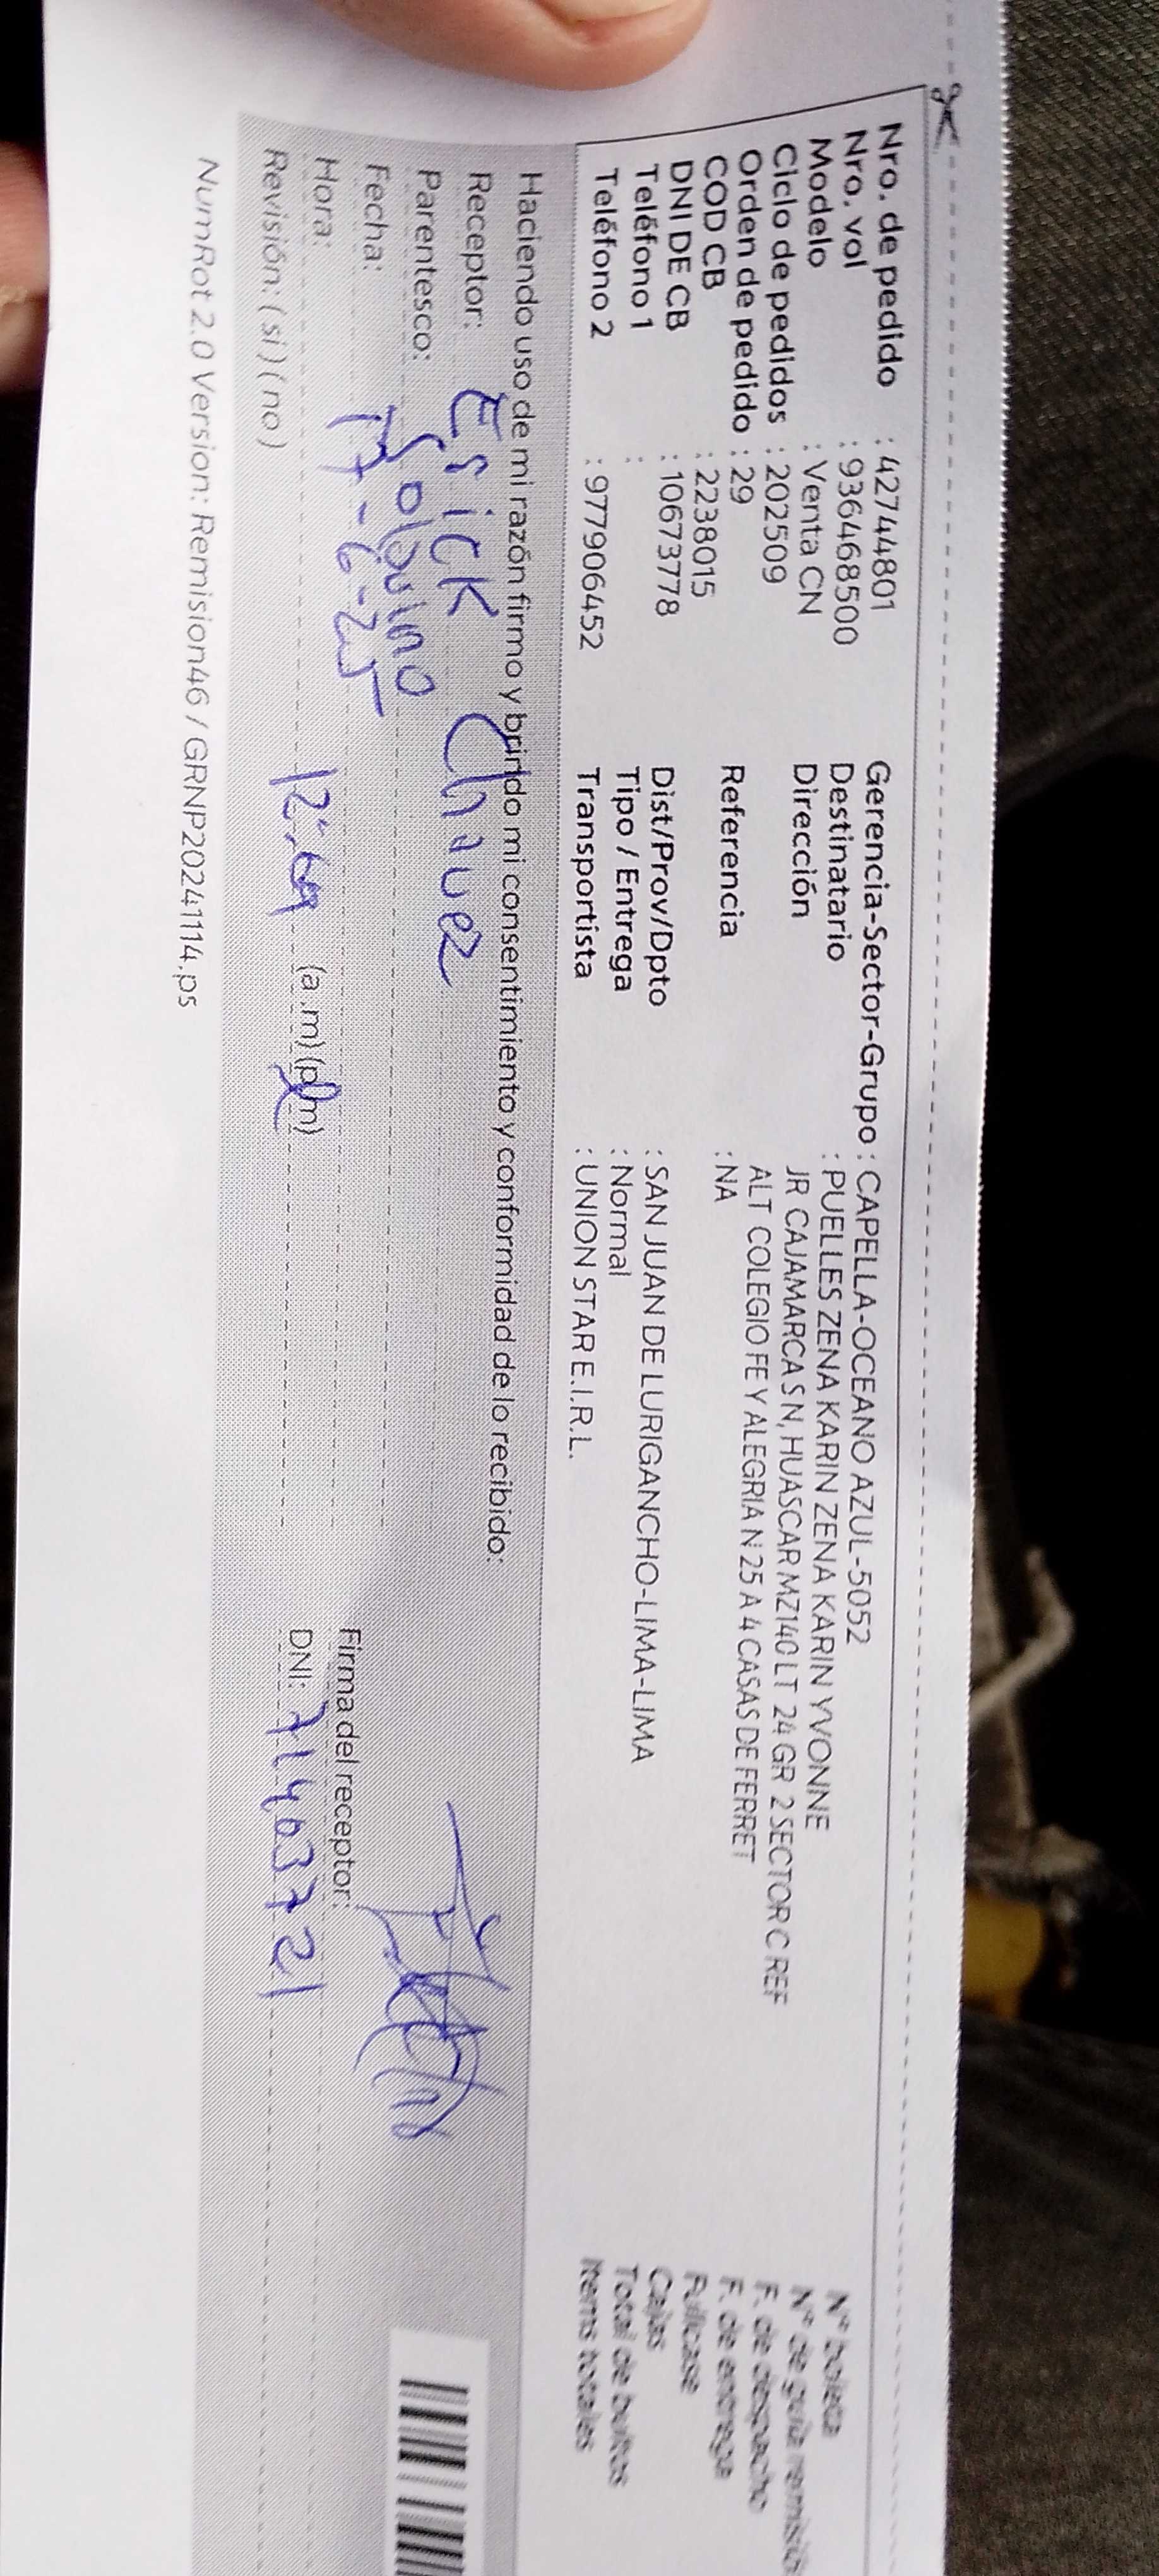 Nro. de pedido : 42744801
Nro. vol : 936468500
Modelo : Venta CN
Ciclo de pedidos : 202509
Orden de pedido : 29
COD CB : 2238015
DNI DE CB : 10673778
Teléfono 1 :
Teléfono 2 : 977906452
Gerencia-Sector-Grupo : CAPELLA-OCEANO AZUL-5052
Destinatario : PUELLES ZENA KARIN ZENA KARIN YVONNE
Dirección JR CAJAMARCA S N, HUASCAR MZ140 LT 24 GR 2 SECTOR C REF
ALT COLEGIO FE Y ALEGRIA N 25 A 4 CASAS DE FERRET
Referencia : NA
Dist/Prov/Dpto : SAN JUAN DE LURIGANCHO-LIMA-LIMA
Tipo / Entrega : Normal
Transportista : UNION STAR E.I.R.L.
N° boleta
N° de guía remisión
F. de despacho
F. de entrega
Fullcase
Cajas
Total de bultos
Items totales
Haciendo uso de mi razón firmo y brindo mi consentimiento y conformidad de lo recibido:
Receptor: Erick Chavez
Parentesco: Sobrino
Fecha: 17-6-25
Hora: (a.m) (p.m)
Revisión: ( si ) ( no )
Firma del receptor:
DNI: 71403721
NumRot 2.0 Version: Remision46 / GRNP20241114.ps